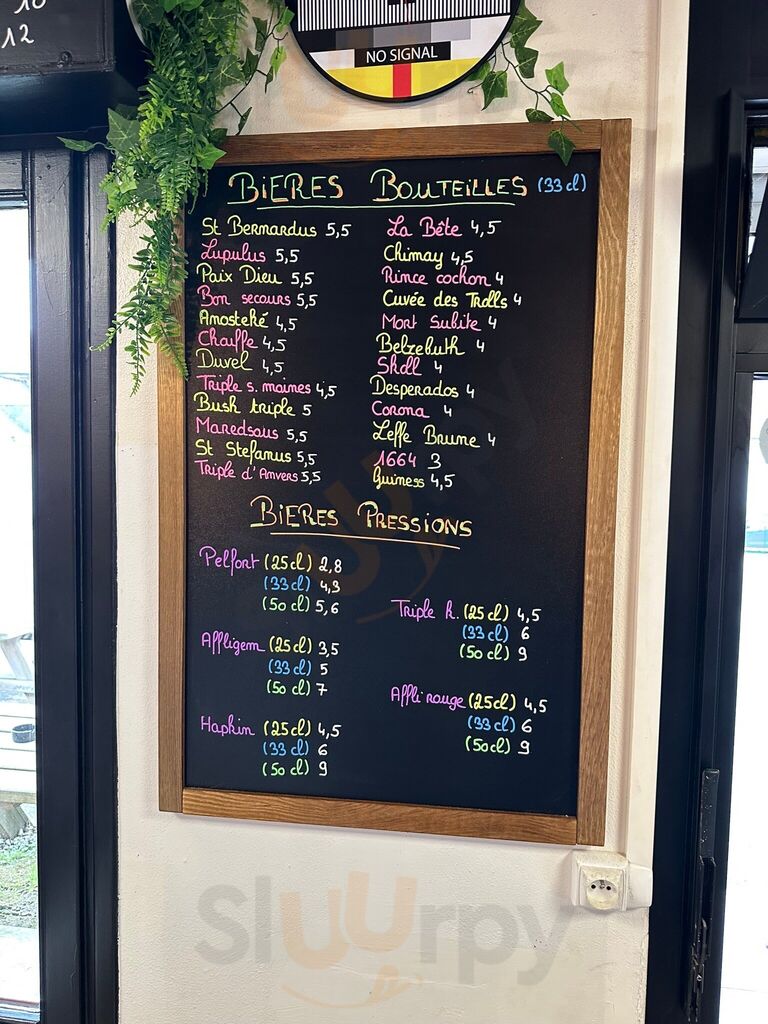 10
12
NO SIGNAL
BIERES BOUTEILLES (33 cl)
St Bernardus 5,5
Lupulus 5,5
Paix Dieu 5,5
Bon secours 5,5
Anosteké 4,5
Chauffe 4,5
Duvel 4,5
Triple s. moines 4,5
Bush triple 5
Maredsous 5,5
St Stefanus 5,5
Triple d'Anvers 5,5
La Bête 4,5
Chimay 4,5
Prince cochon 4
Cuvée des Trolls 4
Mort Subite 4
Belzebuth 4
Skoll 4
Desperados 4
Corona 4
Leffe Brune 4
1664 3
Guiness 4,5
BIERES PRESSIONS
Pelfort (25cl) 2,8
(33 cl) 4,3
(50 cl) 5,6
Affligem (25cl) 3,5
(33 cl) 5
(50 cl) 7
Hapkin (25cl) 4,5
(33 cl) 6
(50 cl) 9
Triple k. (25cl) 4,5
(33 cl) 6
(50 cl) 9
Affli rouge (25cl) 4,5
(33 cl) 6
(50cl) 9
Sluurpy